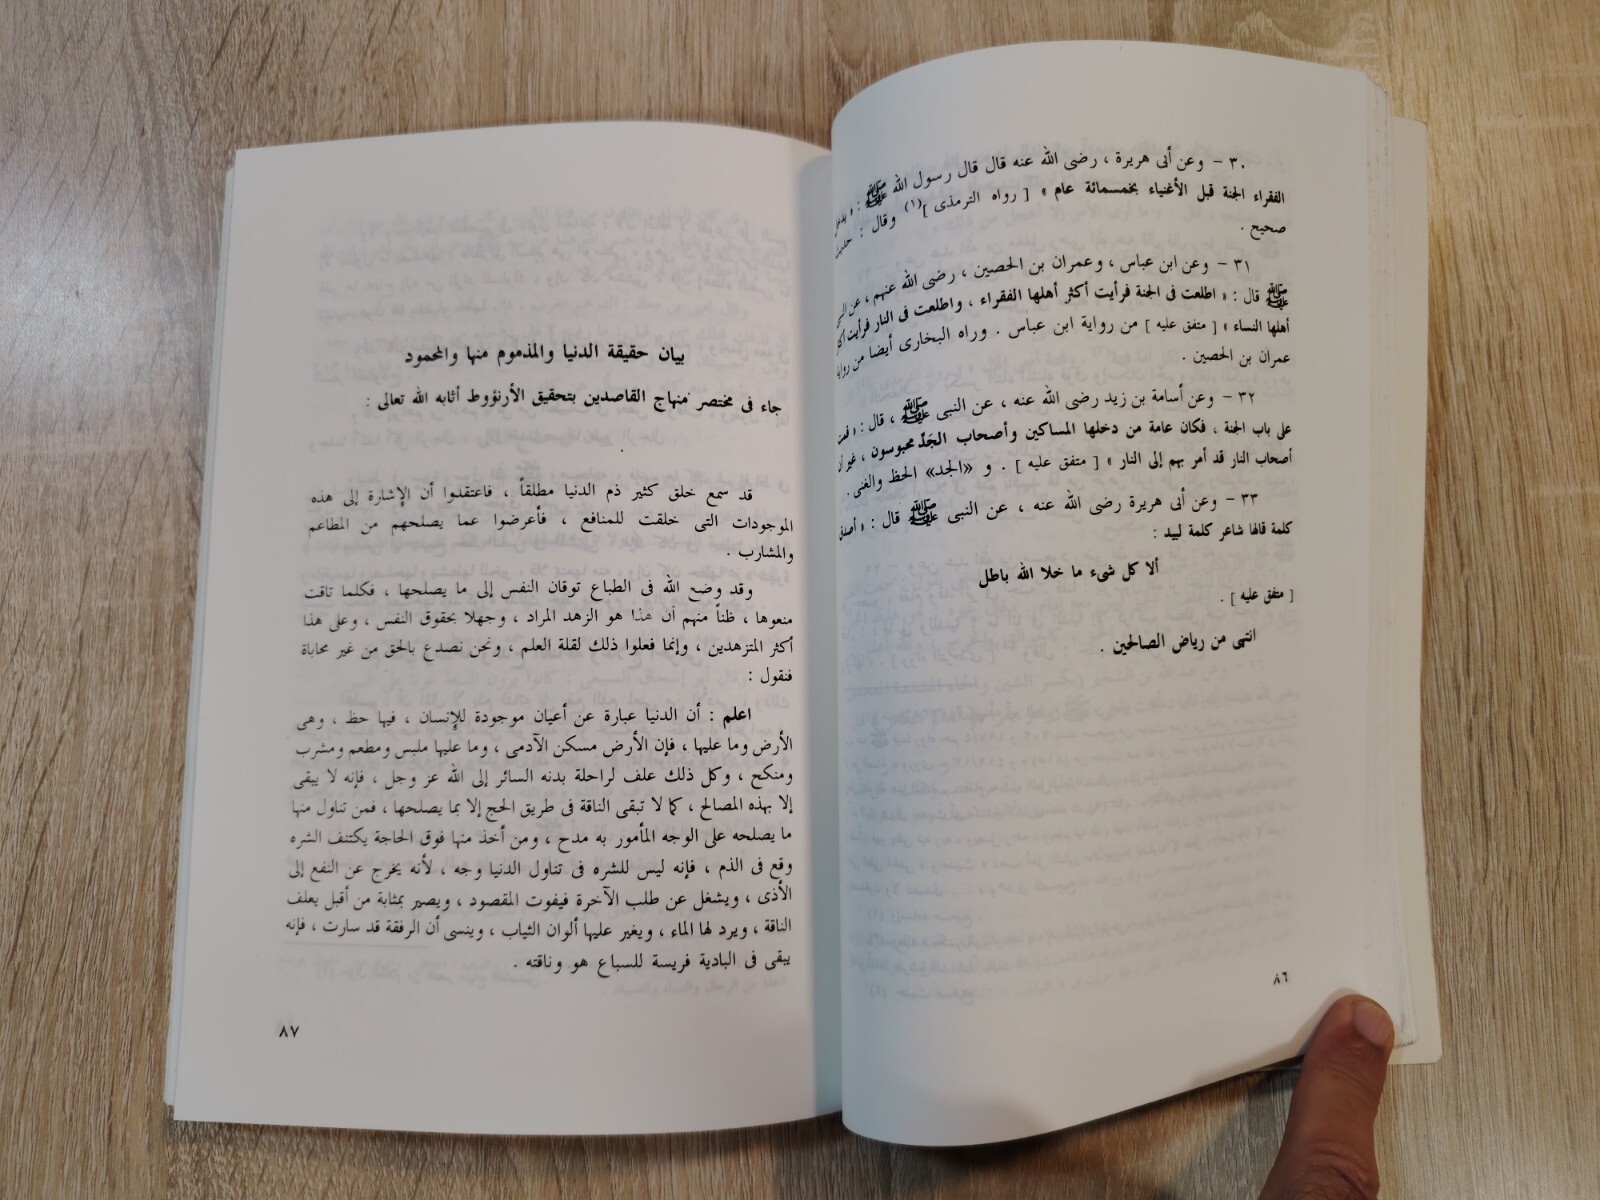 ٣٠ - وعن أبى هريرة ، رضى الله عنه قال قال رسول الله ﷺ : « يدخل
الفقراء الجنة قبل الأغنياء بخمسمائة عام » [ رواه الترمذى ](١) وقال : حديث
صحيح .
٣١ - وعن ابن عباس ، وعمران بن الحصين ، رضى الله عنهم ، عن النبى
ﷺ قال : « اطلعت فى الجنة فرأيت أكثر أهلها الفقراء ، واطلعت فى النار فرأيت أكثر
أهلها النساء » [ متفق عليه ] من رواية ابن عباس . وراه البخارى أيضا من رواية
عمران بن الحصين .
٣٢ - وعن أسامة بن زيد رضى الله عنه ، عن النبى ﷺ ، قال : « قمت
على باب الجنة ، فكان عامة من دخلها المساكين وأصحاب الجَدِّ محبوسون ، غير أن
أصحاب النار قد أمر بهم إلى النار » [ متفق عليه ] . و «الجد» الحظ والغنى .
٣٣ - وعن أبى هريرة رضى الله عنه ، عن النبى ﷺ قال : « أصدق
كلمة قالها شاعر كلمة لبيد :
ألا كل شىء ما خلا الله باطل
[ متفق عليه ] .
انتهى من رياض الصالحين .
٨٦
بيان حقيقة الدنيا والمذموم منها والمحمود
جاء فى مختصر منهاج القاصدين بتحقيق الأرنؤوط أثابه الله تعالى :
قد سمع خلق كثير ذم الدنيا مطلقاً ، فاعتقدوا أن الإشارة إلى هذه
الموجودات التى خلقت للمنافع ، فأعرضوا عما يصلحهم من المطاعم
والمشارب .
وقد وضع الله فى الطباع توقان النفس إلى ما يصلحها ، فكلما تاقت
منعوها ، ظناً منهم أن هذا هو الزهد المراد ، وجهلا بحقوق النفس ، وعلى هذا
أكثر المتزهدين ، وإنما فعلوا ذلك لقلة العلم ، ونحن نصدع بالحق من غير محاباة
فنقول :
اعلم : أن الدنيا عبارة عن أعيان موجودة للإنسان ، فيها حظ ، وهى
الأرض وما عليها ، فإن الأرض مسكن الآدمى ، وما عليها ملبس ومطعم ومشرب
ومنكح ، وكل ذلك علف لراحلة بدنه السائر إلى الله عز وجل ، فإنه لا يبقى
إلا بهذه المصالح ، كما لا تبقى الناقة فى طريق الحج إلا بما يصلحها ، فمن تناول منها
ما يصلحه على الوجه المأمور به مدح ، ومن أخذ منها فوق الحاجة يكتنف الشره
وقع فى الذم ، فإنه ليس للشره فى تناول الدنيا وجه ، لأنه يخرج عن النفع إلى
الأذى ، ويشغل عن طلب الآخرة فيفوت المقصود ، ويصير بمثابة من أقبل يعلف
الناقة ، ويرد لها الماء ، ويغير عليها ألوان الثياب ، وينسى أن الرفقة قد سارت ، فإنه
يبقى فى البادية فريسة للسباع هو وناقته .
٨٧